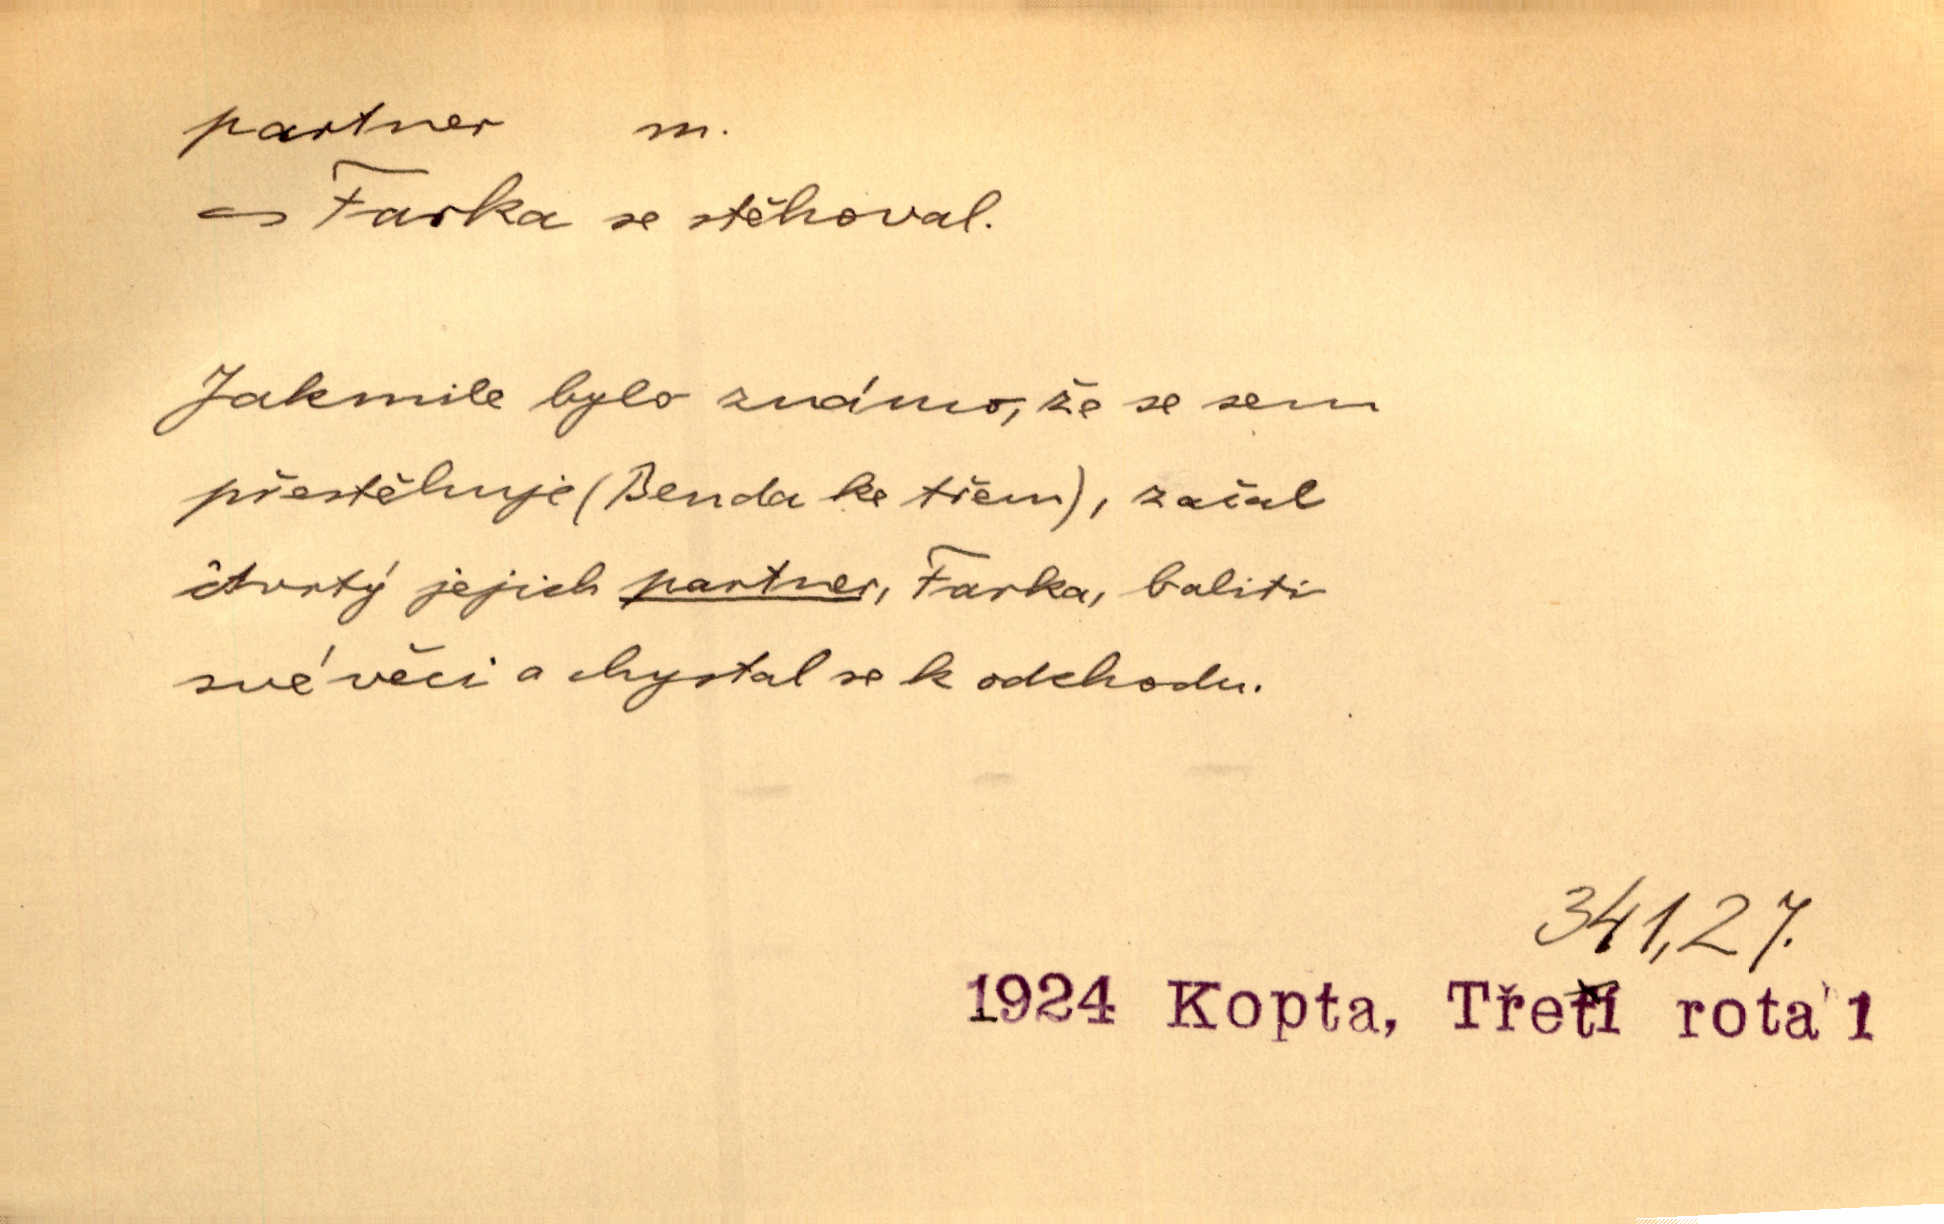 partner m.
Farka se stěhoval.
Jakmile bylo známo, že se sem
přestěhuje (Benda ke třem), začal
čtvrtý jejich partner, Farka, baliti
své věci a chystal se k odchodu.
341,27.
1924 Kopta, Třetí rota 1